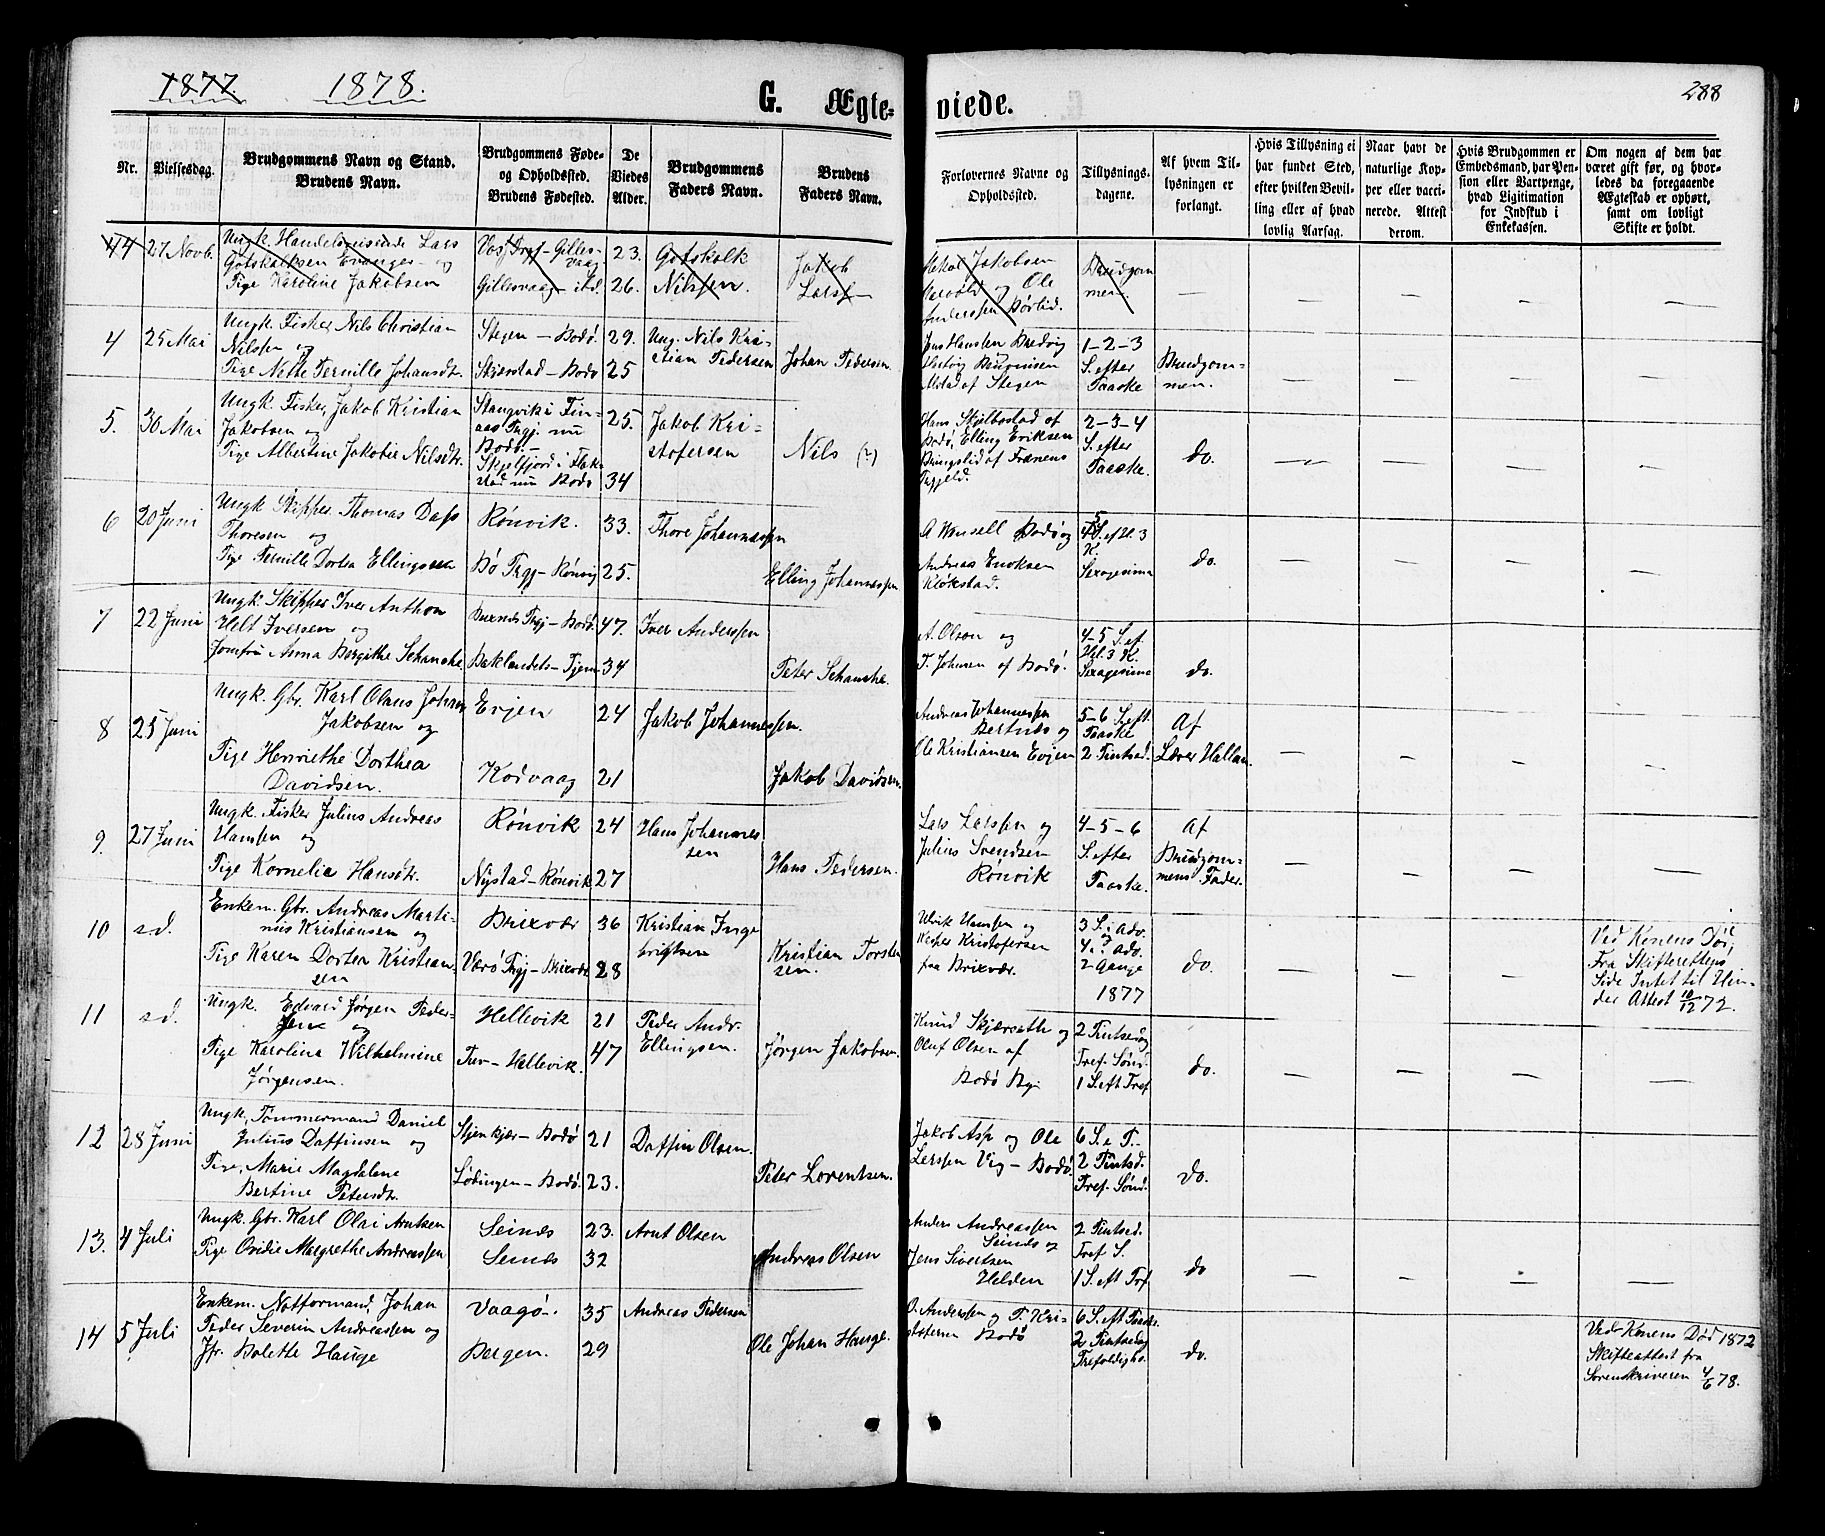 1877. 1878.
G. Ægte-
viede.
288
Nr.
Vielsesdag.
Brudgommens Navn og Stand.
Brudens Navn.
Brudgommens Føde-
og Opholdssted.
Brudens Fødested.
De
Viedes
Alder.
Brudgommens
Faders Navn.
Brudens
Faders Navn.
Forlovernes Navne og
Opholdssted.
Tillysnings-
dagene.
Af hvem Til-
lysningen er
forlangt.
Hvis Tillysning ei
har fundet Sted,
efter hvilken Bevil-
ling eller af hvad
lovlig Aarsag.
Naar havt de
naturlige Kop-
per eller vacci-
nerede. Attest
derom.
Hvis Brudgommen er
Embedsmand, har Pen-
sion eller Vartpenge,
hvad Legitimation
for Indskud i
Enkekassen.
Om nogen af dem har
været gift før, og hvor-
ledes da foregaaende
Ægteskab er ophørt,
samt om lovligt
Skifte er holdt.
44 27 Novb.
Ungk. Handelsreisende Lars
Gotskalksen Evanger og
Tige Karoline Jakobsen
Gilles-
vaag
Gillesvaag
23.
26.
Gotskalk
Nilssen.
Jakob
Larss
Jakobsen
og Ole
Anderssen
Brudgom
men.
4 25 Mai
Ungk. Fisker Nils Christian
Nilssen og
Pige Nette Pernille Johansdt.
Stegen – Bodø.
Skjerstad – Bodø
29.
25
Ung. Nils Kri-
stian Pedersen
Johan Pedersen.
Jens Hanssen Bredvig
af Stegen
1-2-3
S. efter
Paaske
Brudgom-
men.
5. 30 Mai
Ungk. Fisker Jakob Kristian
Jakobsen og
Pige Albertine Jakobie Nilsdtr.
Stangvik i Fin-
aas Prgj. nu
Bodø. –
Skjelfjord i Flak-
stad nu Bodø
25.
34
Jakob Kri-
stofersen
Nils (?)
Hans Skjelbostad af
Bodø, Elling Eriksen
Bringslid af Frænens
Prgjeld.
2-3-4
S. efter
Paaske.
do.
6 20 Juni
Ungk Skipper Thomas Dass
Thoresen og
Pige Pernille Dortea Ellingsen
Rønvik.
Bø Prgj – Rønvig
33.
25.
Thore Johannessen
Elling Johannessen
A Wensell Bodø og
Andreas Enoksen
Kløkstad.
S. ef Hl. 3
K.
Sexagesima
do.
7 22 Juni
Ungk. Skipper Iver Anthon
Helt Iversen og
Jomfru Anna Bergithe Schanche.
Buxnes Prgj – Bodø.
Baklandets – Tjem
47.
34
Iver Anderssen
Peter Schanche.
A. Olson og
P. Johnsen af Bodø.
4-5 S. ef.
Hel. 3 K.
Sexagesima
do.
8 25 Juni
Ungk. Gbr. Karl Olaus Johan
Jakobsen og
Pige Henriethe Dorthea
Davidsen.
Evjen
Kodvaag
24
21
Jakob Johannessen.
Jakob Davidsen.
Andreas Johannessen
Bertnes og
Ole Kristiansen Evjen
5-6 S. eft.
Paaske
2 Pintsed.
Af
Lærer Hallan.
9. 27 Juni
Ungk. Fisker Julius Andreas
Hansen og
Pige Kornelia Hansdtr.
Rønvik
Nystad – Rønvik
24
27
Hans Johannes
sen
Hans Pedersen.
Lars Larssen og
Julius Svendsen
Rønvik
4-5-6
S. efter
Paaske.
Af
Brudgom-
mens Fader.
10 s.d.
Enkem. Gbr. Andreas Marti-
nus Kristiansen og
Pige Karen Dortea Kristian-
sen
Brixvær
Værø Prgj – Brixvær
36
28
Kristian Inge
brigtsen
Kristian Torsten
sen.
Ulrik Hansen og
Kasper Kristofersen
paa Brixvær.
3 S. i Adv.
og
4. ? Adv.
2 Gange
1877
do.
Ved Konens Død.
Fra Skifterettens
Side Intet til Hin-
der Attest 10/12 72.
11 s.d.
Ungk. Edvard Jørgen Peder-
sen og
Pige Karolina Wilhelmine
Jørgensen.
Hellevik
Tuv – Hellevik.
21
47
Peder Andr.
Ellingsen.
Jørgen Jakobsen.
Knud Skjærsath og
Oluf Olsen af
Bodø By.
2 Pintsedag
Tref. Sønd.
1 S. eft Tref
do.
12 28 Juni
Ungk. Tømmermand Daniel
Julius Daffinsen og
Pige, Marie Magdalene
Bertine Petersdt.
Stjenkjær – Bodø
Lødingen – Bodø.
21
23.
Daffin Olsen.
Peter Lorentsen.
Jakob Asp og Ole
Larssen Vig – Bodø.
6 S. e P. –
2 Pintsd.
Tref. Sønd.
do.
13. 4 Juli
Ungk. Gbr. Karl Olai Arntsen
Pige Ovidie Margrethe Andreassen
Seines
Seines
23.
32
Arnt Olsen
Andreas Olsen
Anders Andreassen
Seines og
Jens Sivertsen
Helden
2 Pintsed.
Tref S.
1 S. eft Tref.
do
14 5 Juli
Enkem. Notformand, Johan
Peder Severin Andreassen og
Jfr. Bolette Hauge
Vaagø.
Bergen.
35
29
Andreas Pedersen
Ole Johan Hauge.
O. Anderssen og P. Kri-
stofersen Bodø
6 S. eft Paaske.
2 Pintsedag
Trefoldighe.
do.
Ved Konens Død 1872
Skifteattest fra
Sorenskriveren 4/6 78.